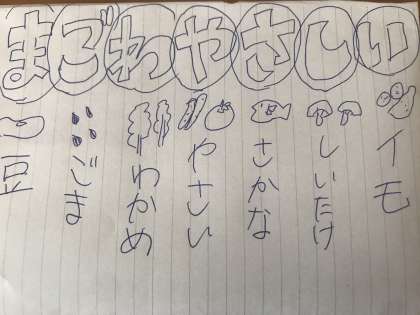 まごわやさしい
豆
ごま
わかめ
やさい
さかな
しいたけ
イモ